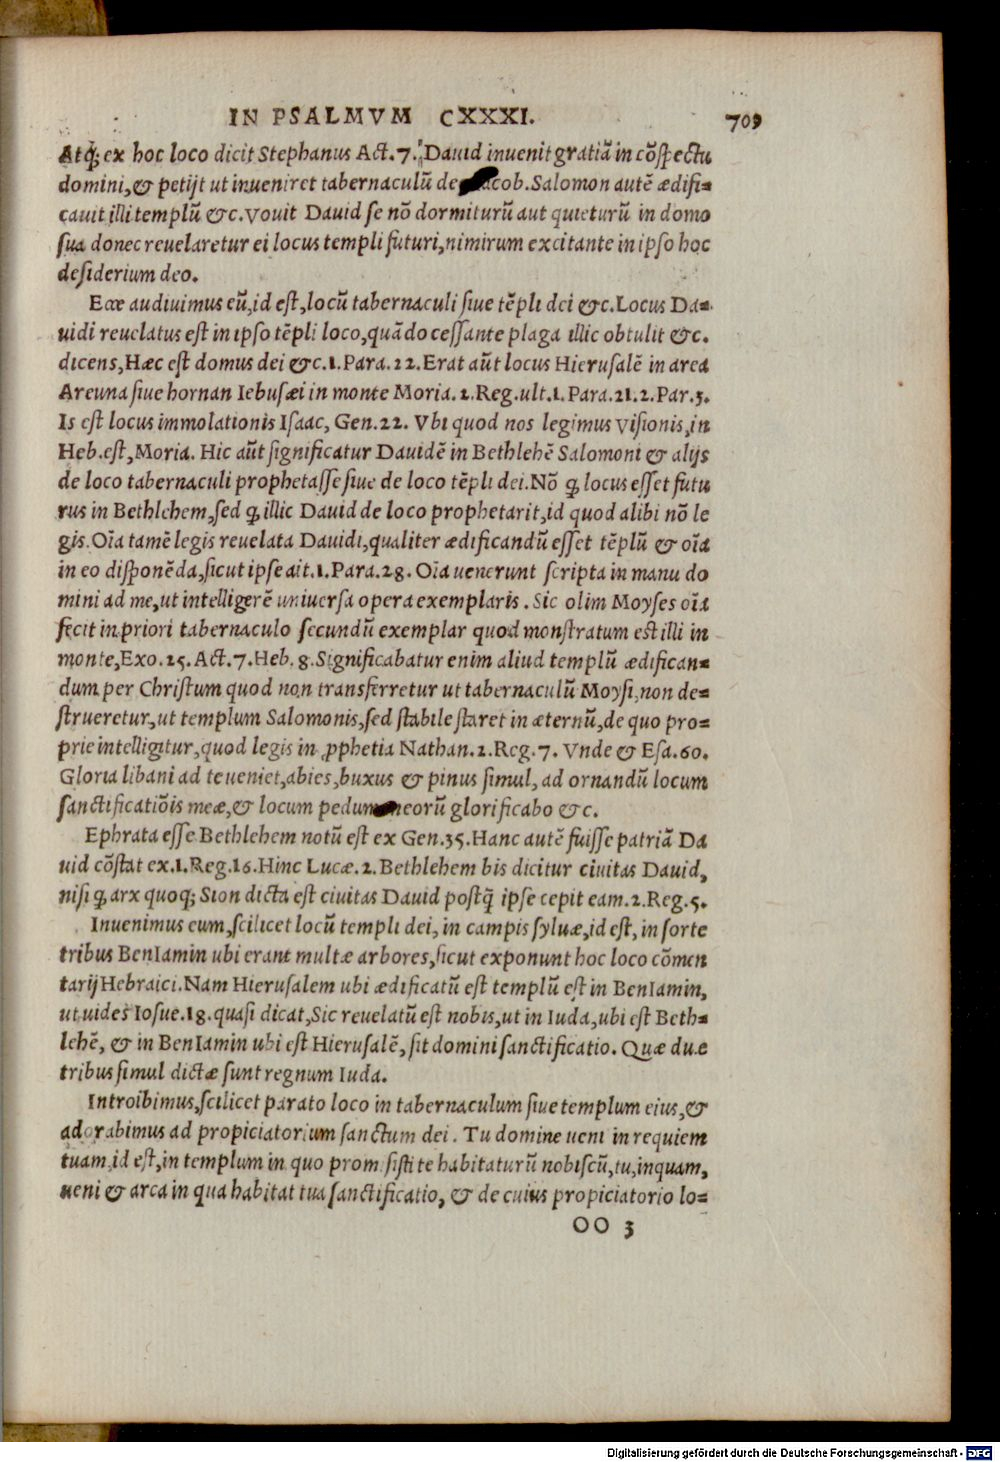 IN PSALMVM CXXXI. 709
Atq; ex hoc loco dicit Stephanus Act. 7. Dauid inuenit gratiā in cōspectu
domini, & petijt ut inueniret tabernaculū deo Iacob. Salomon autē ædifi=
cauit illi templū &c. Vouit Dauid se nō dormiturū aut quieturū in domo
sua donec reuelaretur ei locus templi futuri, nimirum excitante in ipso hoc
desiderium deo.
Ecce audiuimus eū, id est, locū tabernaculi siue tēpli dei &c. Locus Da=
uidi reuelatus est in ipso tēpli loco, quādo cessante plaga illic obtulit &c.
dicens, Hæc est domus dei &c. 1. Para. 22. Erat aūt locus Hierusalē in area
Areuna siue hornan Iebusæi in monte Moria. 2. Reg. ult. 1. Para. 21. 2. Par. 3.
Is est locus immolationis Isaac, Gen. 22. Vbi quod nos legimus visionis, in
Heb. est, Moria. Hic aūt significatur Dauidē in Bethlehē Salomoni & alijs
de loco tabernaculi prophetasse siue de loco tēpli dei. Nō ꝙ locus esset futu
rus in Bethlehem, sed ꝙ illic Dauid de loco prophetarit, id quod alibi nō le
gis. Oīa tamē legis reuelata Dauidi, qualiter ædificandū esset tēplū & oīa
in eo dispōnēda, sicut ipse ait. 1. Para. 28. Oīa uenerunt scripta in manu do
mini ad me, ut intelligerē uniuersa opera exemplaris. Sic olim Moyses oīa
fecit in priori tabernaculo secundū exemplar quod monstratum est illi in
monte, Exo. 25. Act. 7. Heb. 8. Significabatur enim aliud templū ædifican=
dum per Christum quod non transferretur ut tabernaculū Moysi, non de=
strueretur, ut templum Salomonis, sed stabile staret in æternū, de quo pro=
prie intelligitur, quod legis in ꝓphetia Nathan. 2. Reg. 7. Vnde & Esa. 60.
Gloria libani ad te ueniet, abies, buxus & pinus simul, ad ornandū locum
sanctificatiōis meæ, & locum pedum meorū glorificabo &c.
Ephrata esse Bethlehem notū est ex Gen. 35. Hanc autē fuisse patriā Da
uid cōstat ex. 1. Reg. 16. Hinc Lucæ. 2. Bethlehem bis dicitur ciuitas Dauid,
nisi ꝙ arx quoq; Sion dicta est ciuitas Dauid postq̄ ipse cepit eam. 2. Reg. 5.
Inuenimus eum, scilicet locū templi dei, in campis syluæ, id est, in sorte
tribus BenIamin ubi erant multæ arbores, sicut exponunt hoc loco cōmen
tarij Hebraici. Nam Hierusalem ubi ædificatū est templū est in BenIamin,
ut uides Iosue. 18. quasi dicat, Sic reuelatū est nobis, ut in Iuda, ubi est Beth=
lehē, & in BenIamin ubi est Hierusalē, sit domini sanctificatio. Quæ duæ
tribus simul dictæ sunt regnum Iuda.
Introibimus, scilicet parato loco in tabernaculum siue templum eius, &
adorabimus ad propiciatorium sanctum dei. Tu domine ueni in requiem
tuam, id est, in templum in quo promisisti te habitaturū nobiscū, tu, inquam,
ueni & arca in qua habitat tua sanctificatio, & de cuius propiciatorio lo=
OO 3
Digitalisierung gefördert durch die Deutsche Forschungsgemeinschaft - DFG